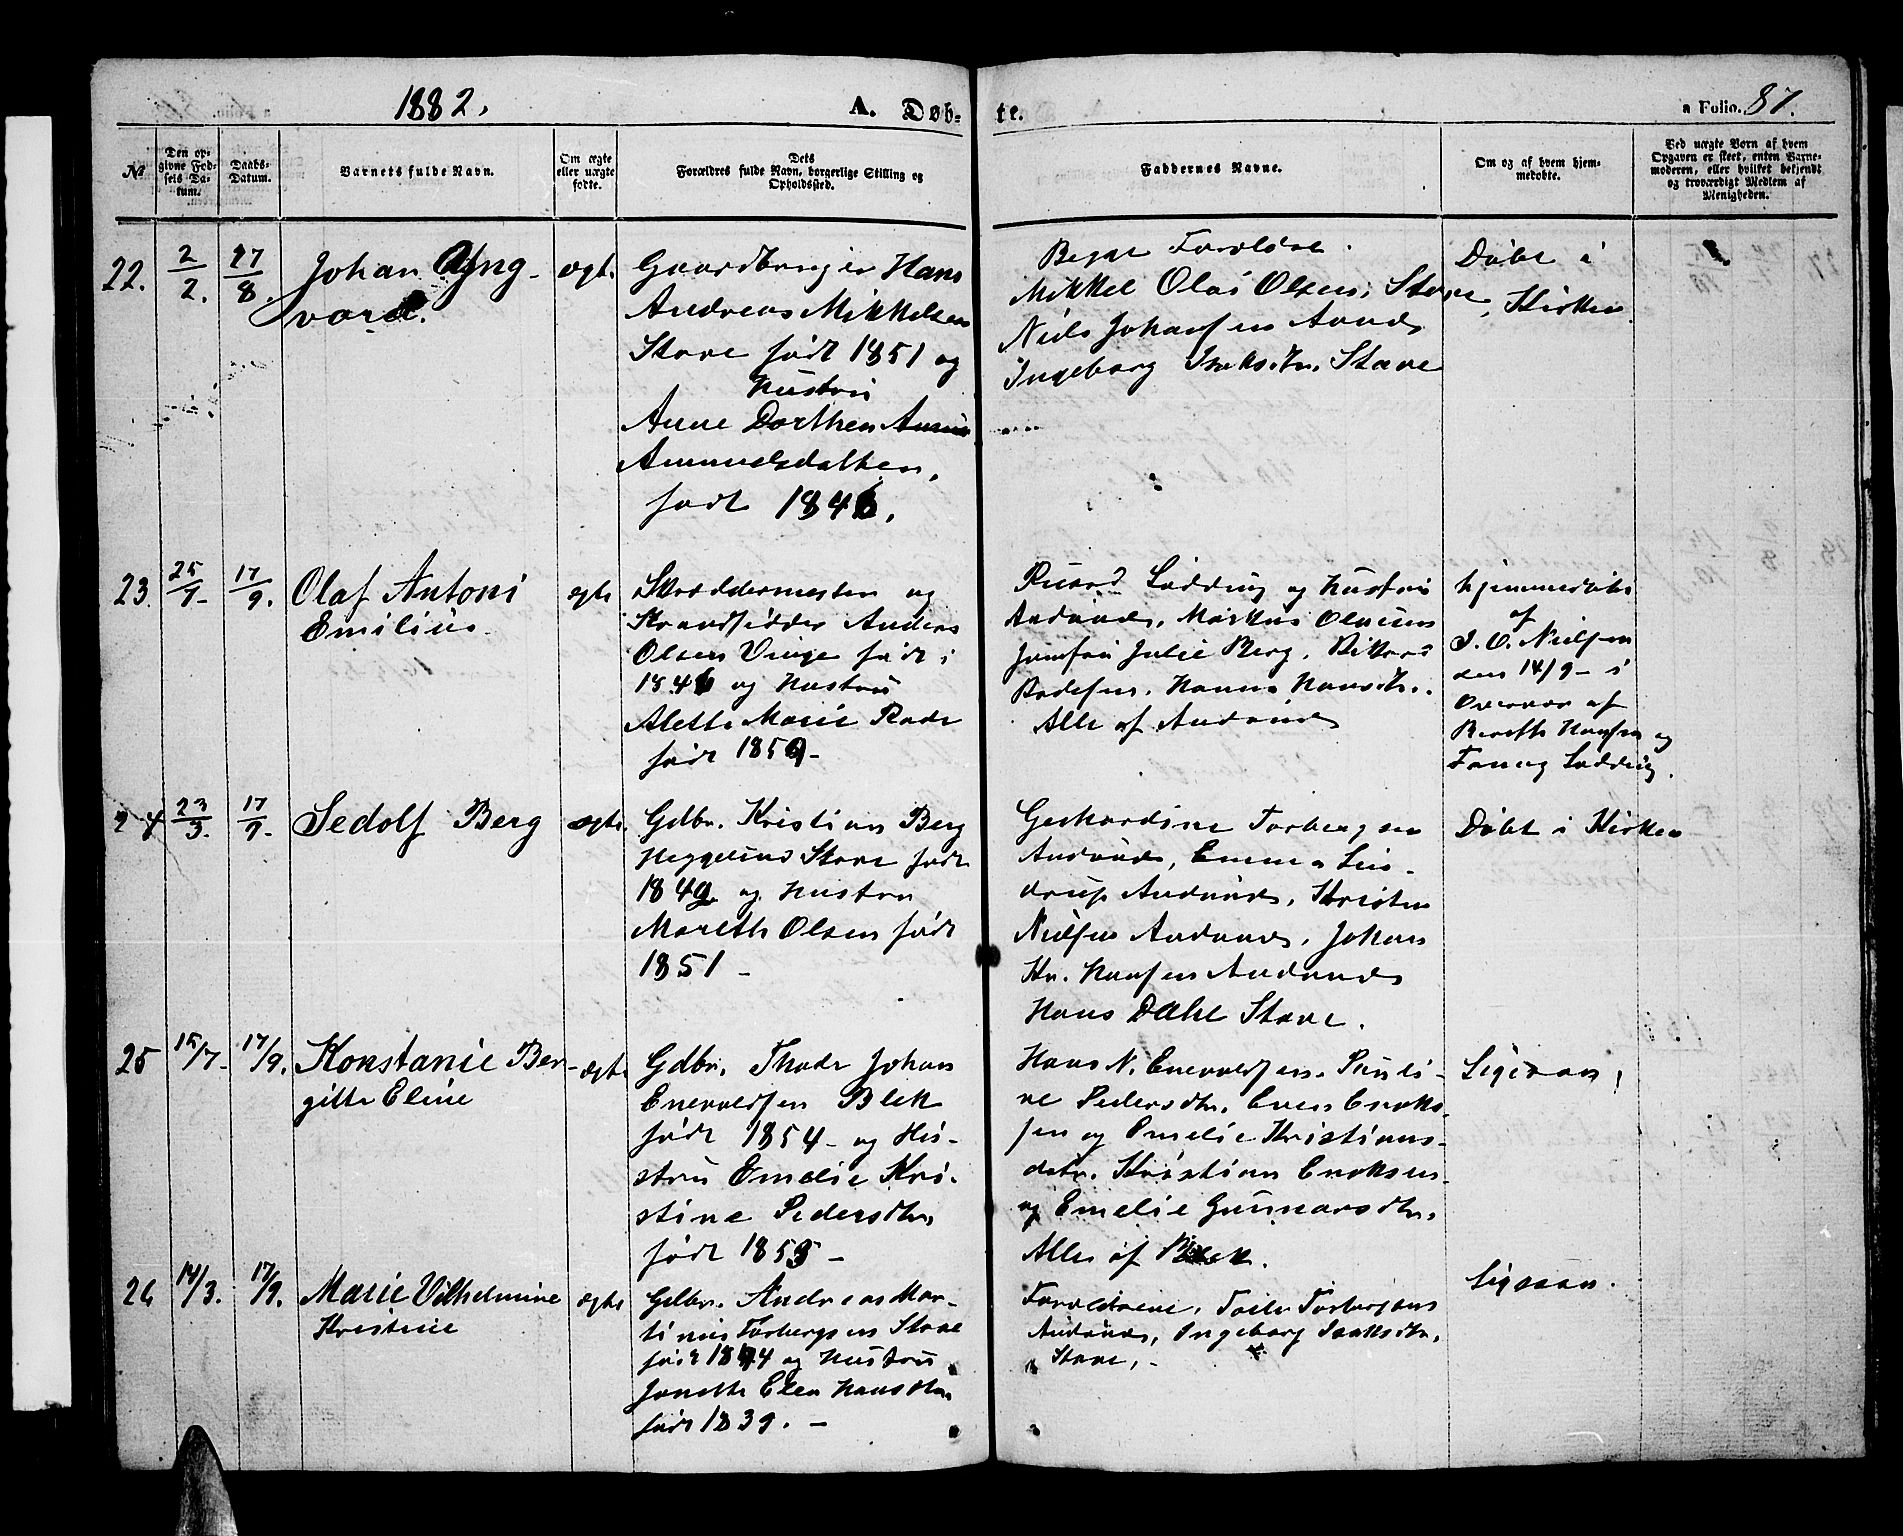 1882.
A. Døb-
te.
a Folio. 87.
№
Den op-
givne Fød-
sels Da-
tum.
Daabs-
Datum.
Barnets fulde Navn.
Om ægte
eller uægte
fødte.
Dets
Forældres fulde Navn, borgerlige Stilling og
Opholdssted.
Faddernes Navne.
Om og af hvem hjem-
medøbte.
Ved uægte Børn af hvem
Opgaven er skeet, enten Barne-
moderen, eller hvilket bekjendt
og troværdigt Medlem af
Menigheden.
22.
2/2.
27/8.
Johan Ing-
vard.
ægt.
Gaardbruger Hans
Andreas Mikkelsen
Stave født 1851 og
Hustru
Anne Dorthea
Amundsdatter,
født 1846.
Begge Forældre.
Mikkel Olai Olsen, Stave,
Niels Johansen
Ingeborg Isaksdtr. Stave
Døbt i
Kirken
23.
25/7-
17/9.
Olaf Antoni
Emilius
ægte
Skræddermester og
Strandsidder Anders
Olsen Vinje født i
1846 og Hustru
Alette Marie Rode
født 1850-
Lødding og Hustru
Andenes, Markus
Jomfru Julie Berg, Rikard
Hanna Hansdtr.
Alle af Andenes
hjemmedøbt
af
J. O. Nielsen
den 14/9- i
Overvær af
Bereth Hansen og
Fanny Lødding.
24
23/3.
17/9.
Sedolf Berg
ægte.
Gdbr. Kristian Berg
Heggelund Stave født
1849 og Hustru
Mareth Olsen født
1851 -
Gerhardine Torbergsen
Andenes, Emma Lin-
drup Andenes, Kristen
Nielsen Andenes, Johan
Kr. Hansen Andenes
Hans Dahl Stave.
Døbt i Kirken
25
15/7-
17/9.
Konstanie Ber-
gitte Eline
ægte
Gdbr. Thode Johan
Enevoldsen Blek
født 1854- og Hu-
stru Emelie Kri-
stine Pedersdtr.
født 1855 -
Hans N. Enevoldsen. Pauli-
ne Pedersdtr. Even Enoks-
sen og Emelie Kristians-
datr. Kristian Enoksen
og Emelie Gunnarsdtr.
Alle af Blek.
Ligesaa,
26
14/3.
17/9.
Marie Vilhelmine
Kristine
ægte
Gdbr. Andreas Mar-
tinus Torbergsen Stave
født 1844 og Hustru
Janette Elen Hansdtr.
født 1839. -
Forældrene, Torbergsen
Andenes, Ingeborg Isaksdtr.
Stave,-
Ligesaa.